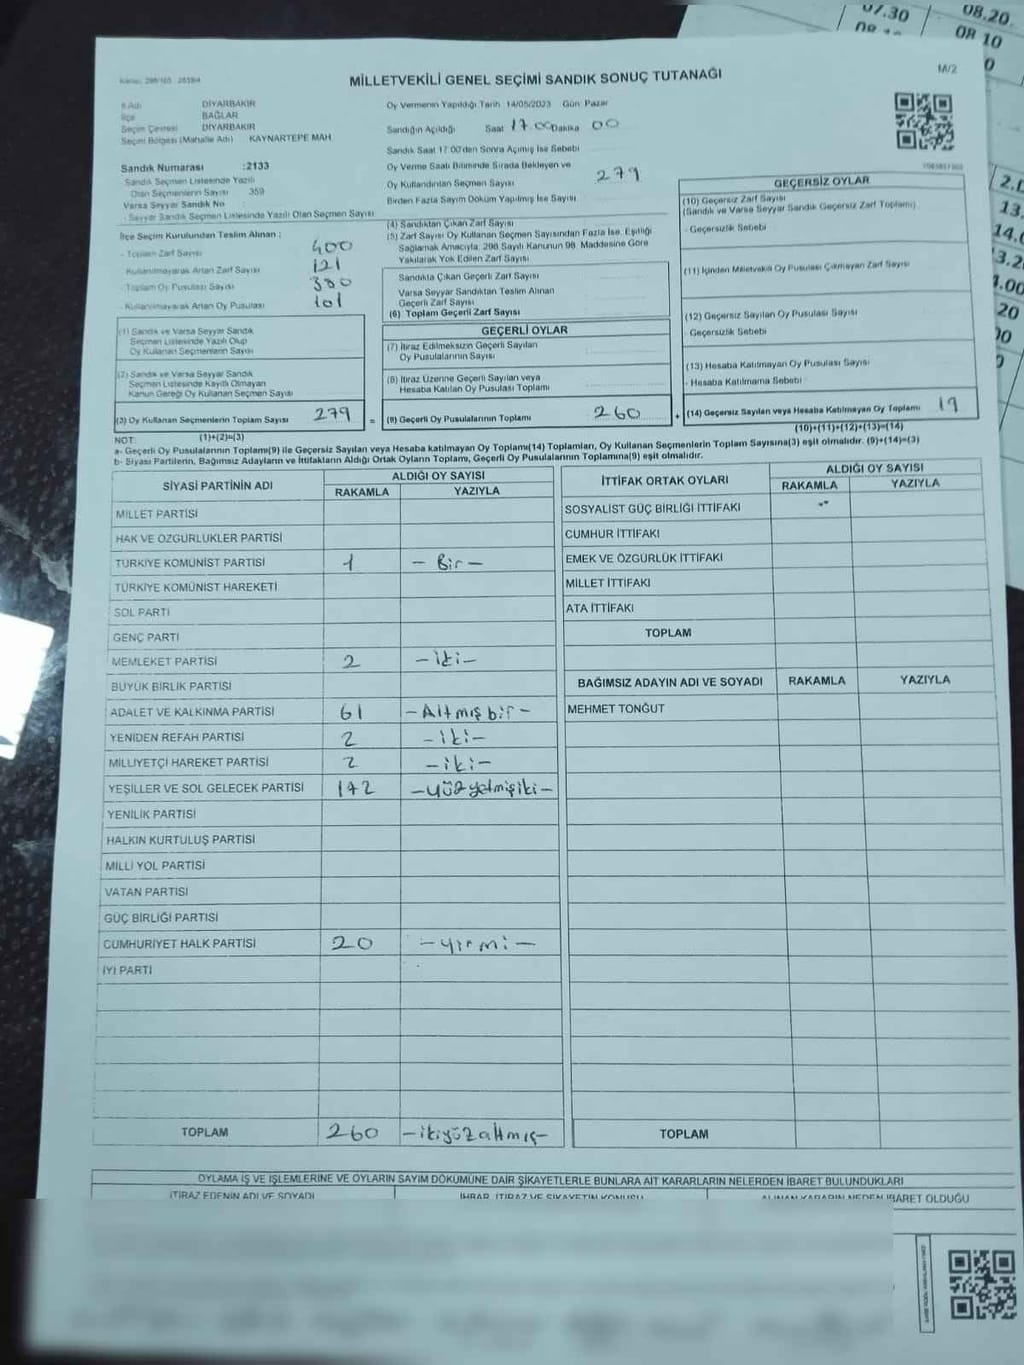 07.30 08.20
08 10
MİLLETVEKİLİ GENEL SEÇİMİ SANDIK SONUÇ TUTANAĞI
M/2
İl Adı DİYARBAKIR
İlçe BAĞLAR
Seçim Çevresi DİYARBAKIR
Seçim Bölgesi (Mahalle Adı) KAYNARTEPE MAH.
Sandık Numarası :2133
Sandık Seçmen Listesinde Yazılı
Olan Seçmenlerin Sayısı 359
Varsa Seyyar Sandık No
- Seyyar Sandık Seçmen Listesinde Yazılı Olan Seçmen Sayısı
İlçe Seçim Kurulundan Teslim Alınan :
- Toplam Zarf Sayısı 400
Kullanılmayarak Artan Zarf Sayısı 121
- Toplam Oy Pusulası Sayısı 380
- Kullanılmayarak Artan Oy Pusulası 101
(1) Sandık ve Varsa Seyyar Sandık
Seçmen Listesinde Yazılı Olup
Oy Kullanan Seçmenlerin Sayısı
(2) Sandık ve Varsa Seyyar Sandık
Seçmen Listesinde Kayıtlı Olmayan
Kanun Gereği Oy Kullanan Seçmen Sayısı
(3) Oy Kullanan Seçmenlerin Toplam Sayısı 279 =
(1)+(2)=(3)
Oy Vermenin Yapıldığı Tarih 14/05/2023 Gün Pazar
Sandığın Açıldığı Saat 17.00 Dakika 00
Sandık Saat 17 00'den Sonra Açılmış İse Sebebi
Oy Verme Saati Bitiminde Sırada Bekleyen ve
Oy Kullandırılan Seçmen Sayısı 279
Birden Fazla Sayım Döküm Yapılmış İse Sayısı
(4) Sandıktan Çıkan Zarf Sayısı
(5) Zarf Sayısı Oy Kullanan Seçmen Sayısından Fazla İse, Eşitliği
Sağlamak Amacıyla, 298 Sayılı Kanunun 98. Maddesine Göre
Yakılarak Yok Edilen Zarf Sayısı
Sandıkta Çıkan Geçerli Zarf Sayısı
Varsa Seyyar Sandıktan Teslim Alınan
Geçerli Zarf Sayısı
(6) Toplam Geçerli Zarf Sayısı
GEÇERLİ OYLAR
(7) İtiraz Edilmeksizin Geçerli Sayılan
Oy Pusulalarının Sayısı
(8) İtiraz Üzerine Geçerli Sayılan veya
Hesaba Katılan Oy Pusulası Toplamı
(9) Geçerli Oy Pusulalarının Toplamı 260 +
GEÇERSİZ OYLAR
(10) Geçersiz Zarf Sayısı
(Sandık ve Varsa Seyyar Sandık Geçersiz Zarf Toplamı)
- Geçersizlik Sebebi
(11) İçinden Milletvekili Oy Pusulası Çıkmayan Zarf Sayısı
(12) Geçersiz Sayılan Oy Pusulası Sayısı
- Geçersizlik Sebebi
(13) Hesaba Katılmayan Oy Pusulası Sayısı
- Hesaba Katılmama Sebebi
(14) Geçersiz Sayılan veya Hesaba Katılmayan Oy Toplamı 19
(10)+(11)+(12)+(13)=(14)
NOT:
a- Geçerli Oy Pusulalarının Toplamı(9) ile Geçersiz Sayılan veya Hesaba katılmayan Oy Toplamı(14) Toplamları, Oy Kullanan Seçmenlerin Toplam Sayısına(3) eşit olmalıdır. (9)+(14)=(3)
b- Siyasi Partilerin, Bağımsız Adayların ve İttifakların Aldığı Ortak Oyların Toplamı, Geçerli Oy Pusulalarının Toplamına(9) eşit olmalıdır.
SİYASİ PARTİNİN ADI ALDIĞI OY SAYISI
RAKAMLA YAZIYLA
MİLLET PARTİSİ
HAK VE ÖZGÜRLÜKLER PARTİSİ
TÜRKİYE KOMÜNİST PARTİSİ 1 - Bir -
TÜRKİYE KOMÜNİST HAREKETİ
SOL PARTİ
GENÇ PARTİ
MEMLEKET PARTİSİ 2 - iki -
BÜYÜK BİRLİK PARTİSİ
ADALET VE KALKINMA PARTİSİ 61 - Altmış bir -
YENİDEN REFAH PARTİSİ 2 - iki -
MİLLİYETÇİ HAREKET PARTİSİ 2 - iki -
YEŞİLLER VE SOL GELECEK PARTİSİ 172 - yüz yetmişiki -
YENİLİK PARTİSİ
HALKIN KURTULUŞ PARTİSİ
MİLLİ YOL PARTİSİ
VATAN PARTİSİ
GÜÇ BİRLİĞİ PARTİSİ
CUMHURİYET HALK PARTİSİ 20 - yirmi -
İYİ PARTİ
TOPLAM 260 - ikiyüzaltmış -
İTTİFAK ORTAK OYLARI ALDIĞI OY SAYISI
RAKAMLA YAZIYLA
SOSYALİST GÜÇ BİRLİĞİ İTTİFAKI
CUMHUR İTTİFAKI
EMEK VE ÖZGÜRLÜK İTTİFAKI
MİLLET İTTİFAKI
ATA İTTİFAKI
TOPLAM
BAĞIMSIZ ADAYIN ADI VE SOYADI RAKAMLA YAZIYLA
MEHMET TONĞUT
TOPLAM
OYLAMA İŞ VE İŞLEMLERİNE VE OYLARIN SAYIM DÖKÜMÜNE DAİR ŞİKAYETLERLE BUNLARA AİT KARARLARIN NELERDEN İBARET BULUNDUKLARI
İTİRAZ EDENİN ADI VE SOYADI İHBAR, İTİRAZ VE ŞİKAYETİN KONUSU ALINAN KARARIN NEDEN İBARET OLDUĞU